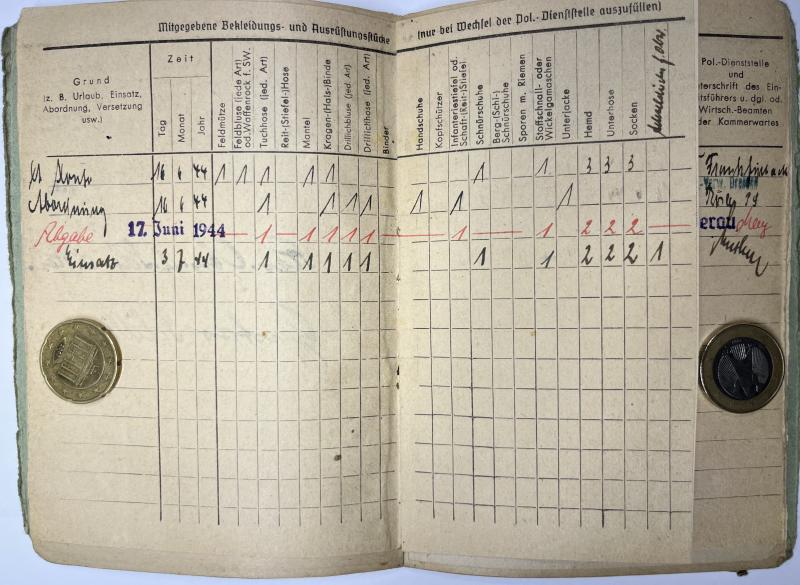 Mitgegebene Bekleidungs- und Ausrüstungsstücke (nur bei Wechsel der Pol.-Dienststelle auszufüllen)
Grund
(z. B. Urlaub, Einsatz,
Abordnung, Versetzung
usw.)
Zeit
Tag
Monat
Jahr
Feldmütze
Feldbluse (jede Art)
od. Waffenrock f. SW.
Tuchhose (jed. Art)
Reit-(Stiefel-)Hose
Mantel
Kragen-(Hals-)Binde
Drillichbluse (jed. Art)
Drillichhose (jed. Art)
Binder
Handschuhe
Kopfschützer
Infanteriestiefel od.
Schaft-(Reit-)Stiefel
Schnürschuhe
Berg-(Schi-)
Schnürschuhe
Sporen m. Riemen
Stoffschnall- oder
Wickelgamaschen
Unterjacke
Hemd
Unterhose
Socken
Pol.-Dienststelle
und
terschrift des Ein-
tsführers u. dgl. od.
Wirtsch.-Beamten
der Kammerwartes
16 6 44 1 1 1 1 1 1 1 3 3 3 Frankfurt a M
Abordnung 16 6 44 1 1 1 1 1 1 1
Abgabe 17. Juni 1944 1 1 1 1 1 1 1 2 2 2
Einsatz 3 7 44 1 1 1 1 1 1 1 2 2 2 1